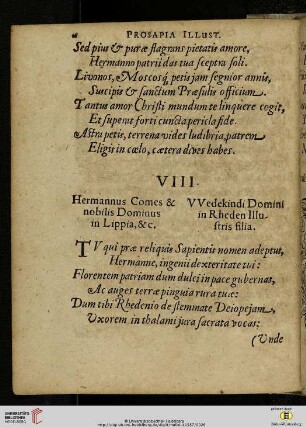 PROSAPIA ILLUST.
Sed pius & puræ flagrans pietatis amore,
Hermanno patrii das tua sceptra soli.
Livonos, Moscos q́ petis jam segnior annis,
Suscipis & sanctum Præsulis officium.
Tantus amor Christi mundum te linquere cogit,
Et superat forti cuncta pericla fide.
Astra petis, terrena vides ludibria, patrem
Eligis in cœlo, cætera dives habes.
VIII.
Hermannus Comes &
nobilis Dominus
in Lippia, &c.
VVedekindi Domini
in Rheden Illu-
stris filia.
TV qui præ reliquis Sapientis nomen adeptus,
Hermanne, ingenii dexteritate tui:
Florentem patriam dum dulci in pace gubernas,
Ac auges terræ pinguia rura tuæ:
Dum tibi Rhedenio de stemmate Deiopejam,
Uxorem in thalami jura sacrata vocas:
(Unde
UNIVERSITÄTS-
BIBLIOTHEK
HEIDELBERG